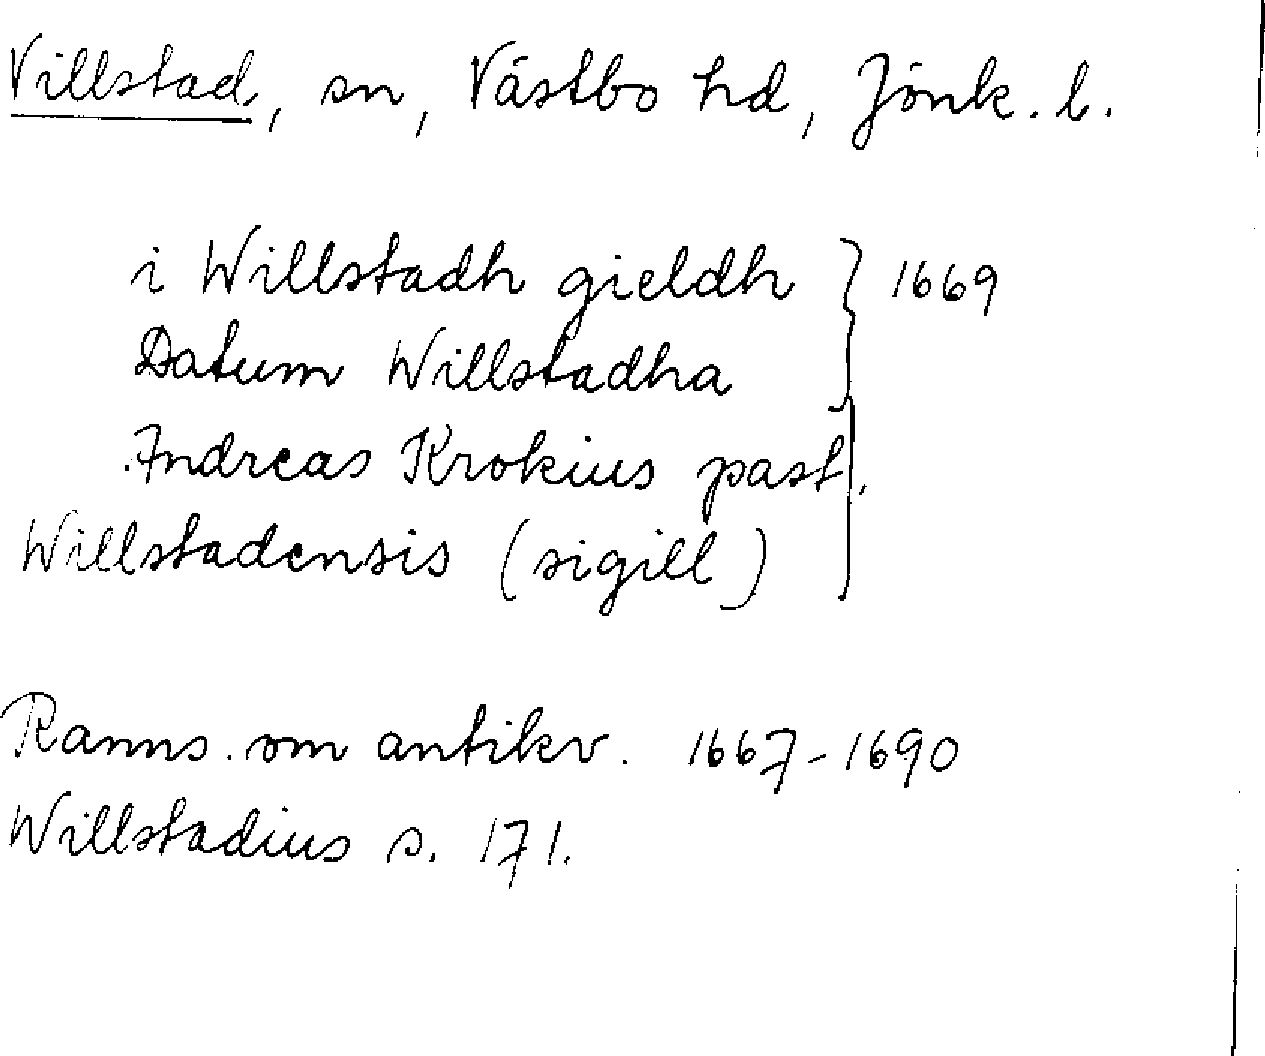 Villstad, sn, Västbo hd, Jönk. l.
i Willstadh gieldh } 1669
Datum Willstadha
Andreas Krokius past.
Willstadensis (sigill)
Ranns. om antikv. 1667-1690
Willstadius s. 171.